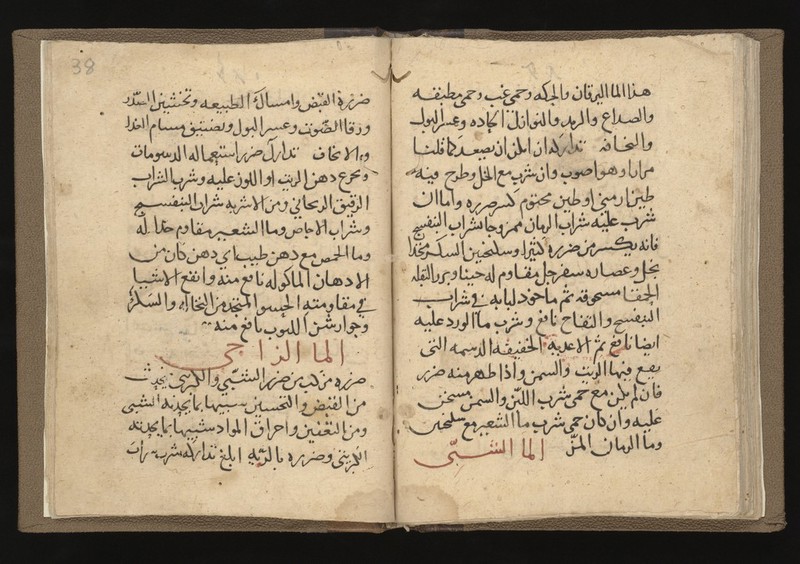 هذا الما اليرقان والحكه وحمى غب وحمى مطبقه
والصداع والرمد والنوازل الحاده وعسر البول
والنحافه تداركه ان امكن ان يصعد كما قلنا
مرارا وهو اصوب وان شرب مع الخل وطرح فيه
طين ارمني او طين مختوم كسر ضرره واما ان
شرب عليه شراب الرمان ممزوجا بشراب البنفسج
فانه يكسر من ضرره كثيرا وسكنجبين السكر متخذا
بخل وعصاره سفرجل مقاوم له حينا وبزر البقله
الحمقا مسحوقه ثم ماخوذ لبابه في شراب
البنفسج والتفاح نافع وشرب ما الورد عليه
ايضا نافع ثم الاغديه الخفيفه الدسمه التي
يقع فيها الزيت والسمن واذا ظهر منه ضرر
فان لم يكن مع حمى شرب اللبن والسمن مسخن
عليه وان كان حمى شرب ما الشعير مع سكنجبين
وما الرمان المز الما الشبي
38
ضرره القبض وامساك الطبيعه وتخشين الصدر
ورقا الصوت وعسر البول وتضييق مسام
تدارك ضرر استعماله الدسومات
وتجرع دهن الزيت او اللوز عليه وشرب الشراب
الرقيق الريحاني ومن الاشربه شراب البنفسج
وشراب الاجاص وما الشعير مقاوم جدا له
وما الحمص مع دهن طيب اي دهن كان من
الادهان الماكوله نافع منه وانفع الاشيا
في مقاومته الحسو المتخذ من النخاله والسكر
وجوارشن اللبوب نافع منه
الما الزاجي
ضرره مركب من ضرر الشبي والكبريتي يحدث
من القبض والتخشين سببها بما يحدثه الشبي
ومن التعفين واحراق المواد شبيها بما يحدثه
الكبريتي وضرره بالريه ابلغ تداركه شرب مرات